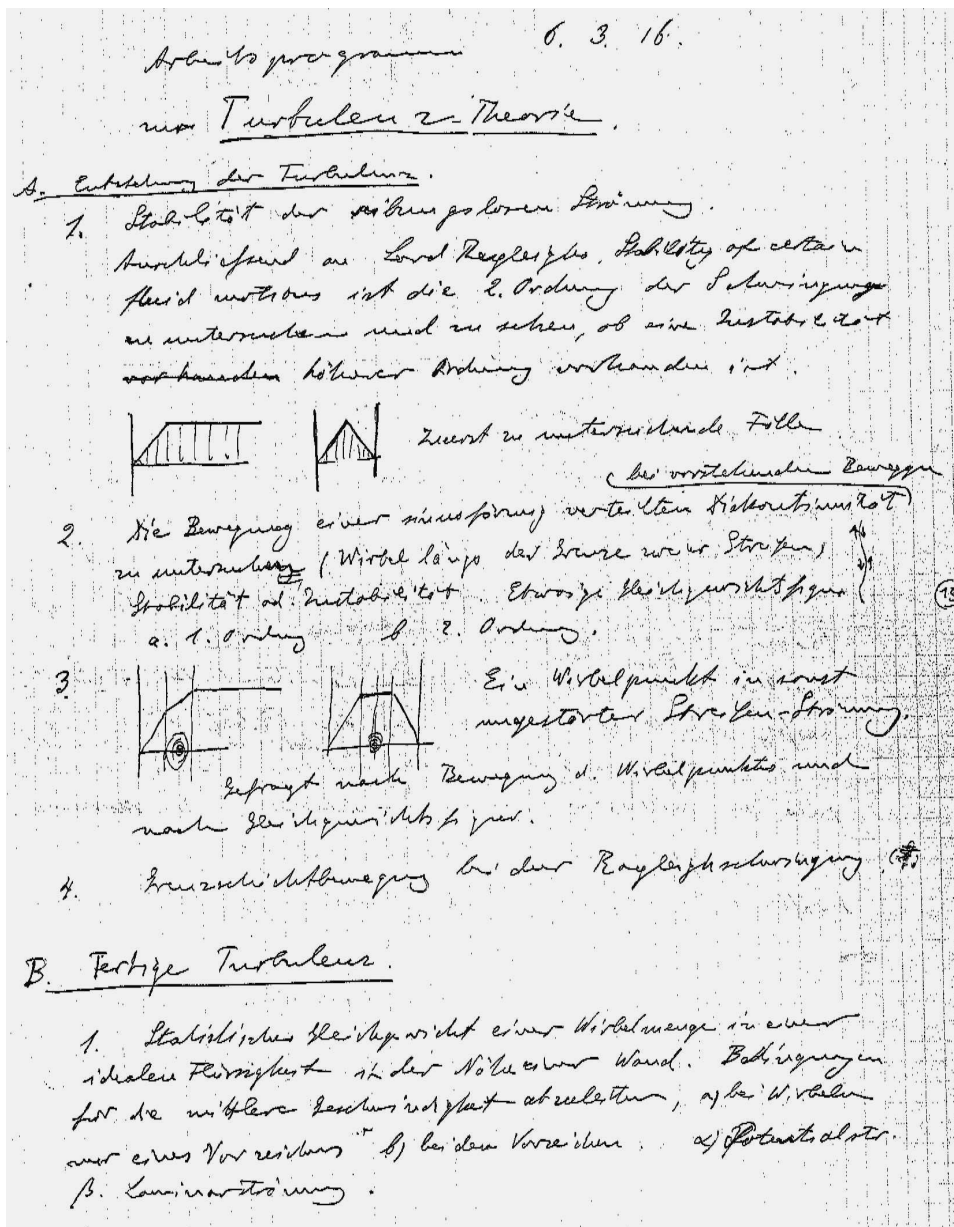 6. 3. 16.
Arbeitsprogramm
zur Turbulenz-Theorie.
A. Entstehung der Turbulenz.
1. Stabilität der reibungslosen Strömung.
Anschliessend an Lord Rayleighs, Stability of certain
fluid motions ist die 2. Ordnung der Schwingungen
zu untersuchen und zu sehen, ob eine Instabilität
vorhanden höherer Ordnung vorhanden ist.
Zuerst zu untersuchende Fälle
bei vorstehenden Beweggn
2. Die Bewegung einer sinusförmig verteilten Diskontinuität
zu untersuchen (Wirbel längs der Grenze zweier Streifen)
Stabilität od. Instabilität. Etwaige Gleichgewichtsfigur
a. 1. Ordnung b 2. Ordnung.
13
3. Ein Wirbelpunkt in sonst
ungestörter Streifen-Strömung.
Gefragt nach Bewegung d. Wirbelpunktes und
nach Gleichgewichtsfigur.
4. Grenzschichtbewegung bei der Rayleighschwingung
B. Fertige Turbulenz.
1. Statistisches Gleichgewicht einer Wirbelmenge in einer
idealen Flüssigkeit in der Nähe einer Wand. Bedingungen
für die mittlere Geschwindigkeit abzuleiten, a) bei Wirbeln
nur eines Vorzeichens b) beiden Vorzeichen. α) Potentialstr.
β. Laminarströmung.